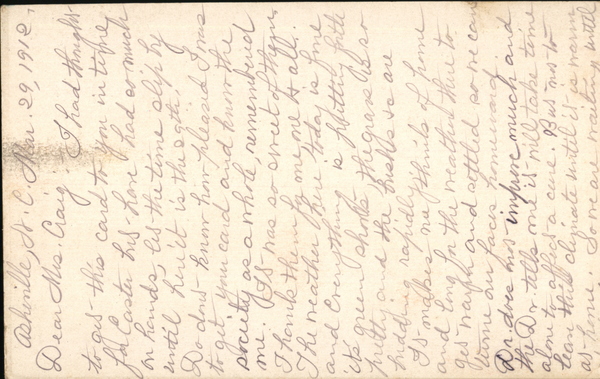 Asheville, N.C. Mar. 29, 1912,
Dear Mrs. Craig, I had thought
to get this card to you in time
for Easter but have had so much
on hands, let the time slip by
until here it is the 29th!
Do don't know how pleased I was
to get your card and know the
society as a whole, remembered
me. It was so sweet of them.
Thank them for me one & all.
The weather here today is fine
and everything is putting forth
its green shoots, the grass is so
pretty and the trees are
budding rapidly.
It makes me think of home
and long for the weather there to
get warm and settled so we can
turn our faces homeward.
Dr. does not improve much and
the Dr. tells me it will take time
alone to affect a cure. But not to
leave this climate until it is warm
at home. So we are waiting until